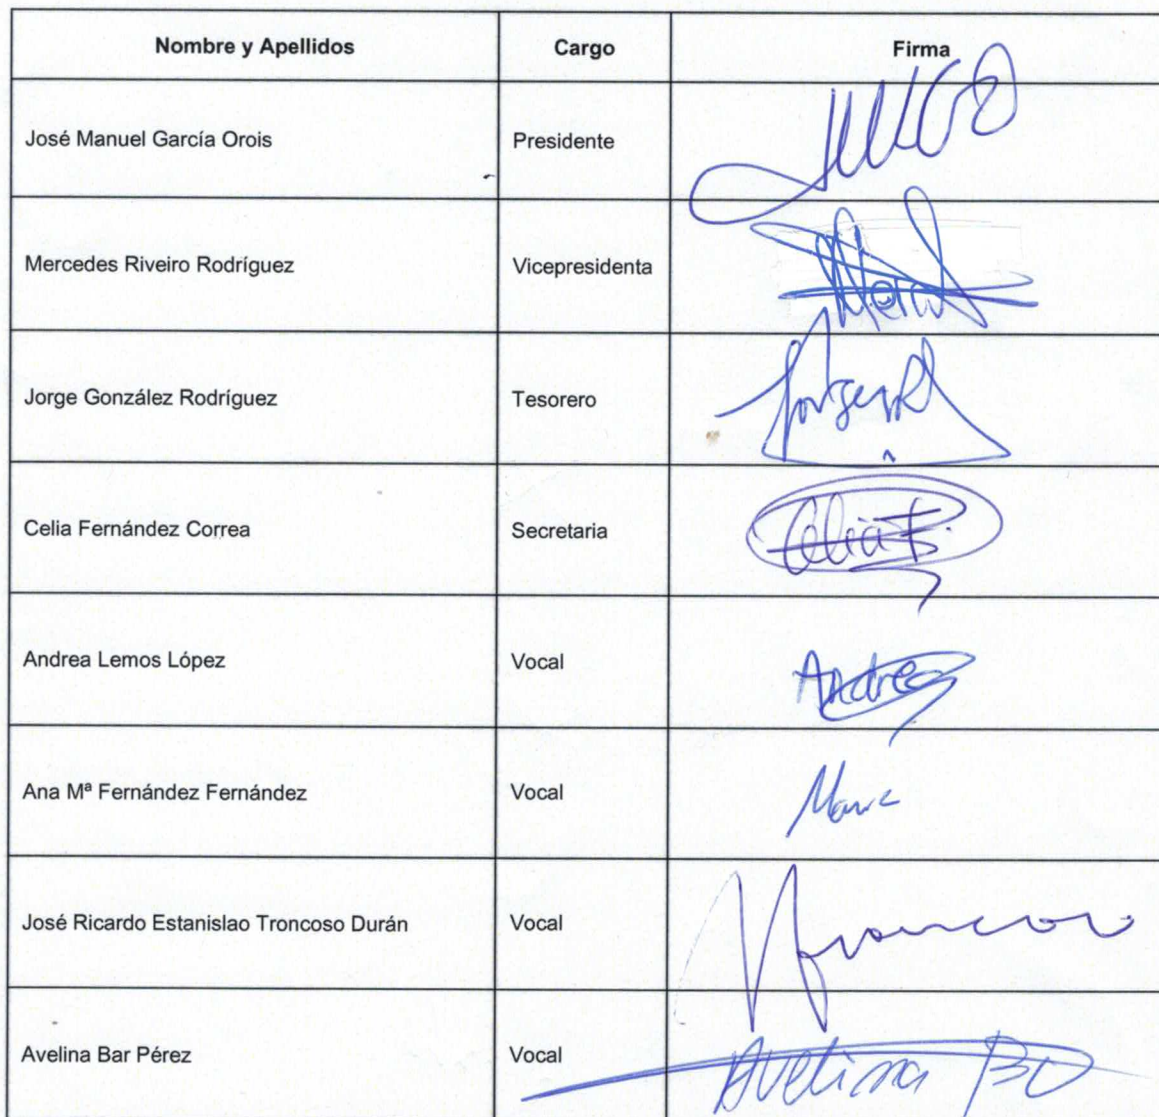 Nombre y Apellidos Cargo Firma
José Manuel García Orois Presidente
Mercedes Riveiro Rodríguez Vicepresidenta
Jorge González Rodríguez Tesorero
Celia Fernández Correa Secretaria Celia F.
Andrea Lemos López Vocal Andrea
Ana Mª Fernández Fernández Vocal
José Ricardo Estanislao Troncoso Durán Vocal
Avelina Bar Pérez Vocal Avelina